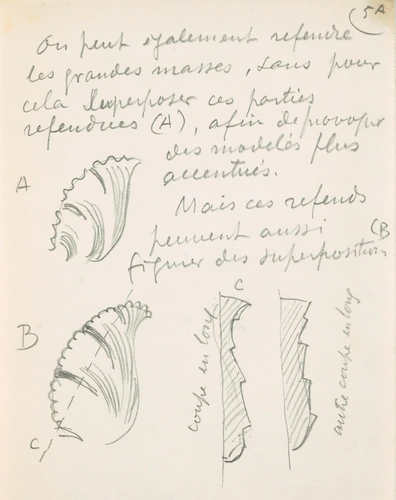 5A
On peut également refendre
les grandes masses, sans pour
cela superposer ces parties
refendues (A), afin de provoquer
des modelés plus
accentués.
A
Mais ces refends
peuvent aussi
figurer des superpositions (B
B
C
C
coupe en long
autre coupe en long